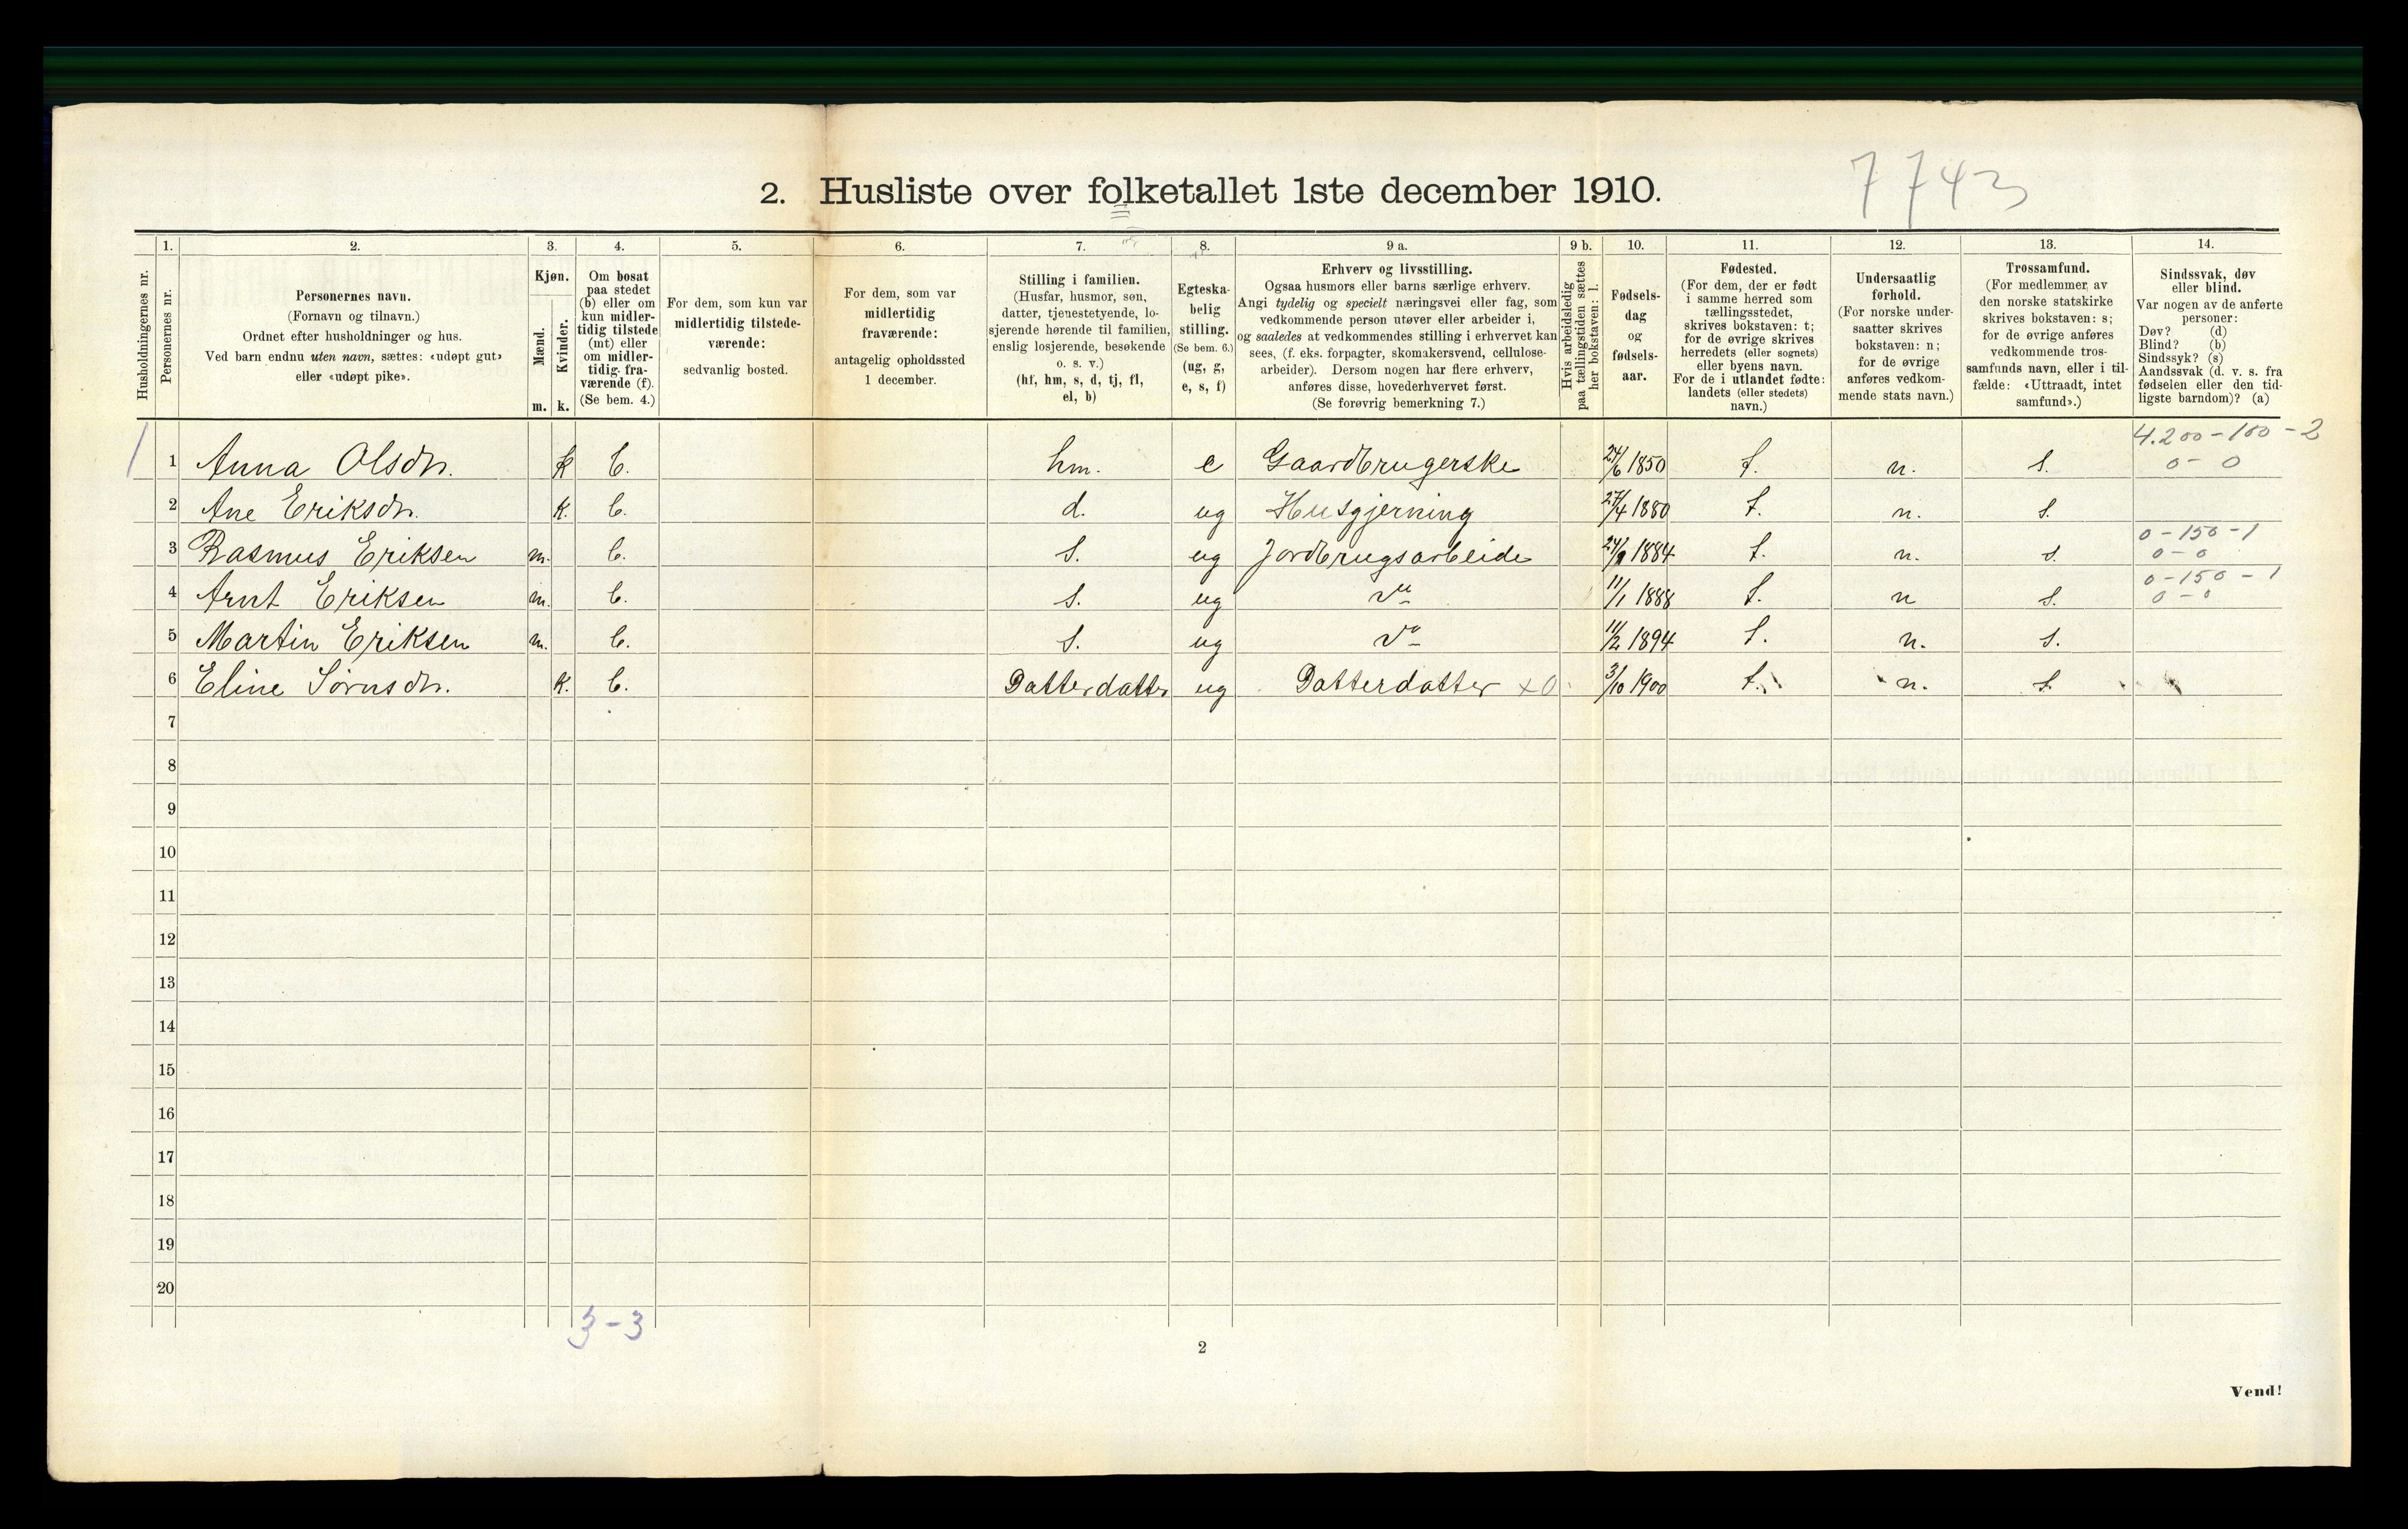 7743
2. Husliste over folketallet 1ste december 1910.
1. 2. 3. 4. 5. 6. 7. 8. 9 a. 9 b. 10. 11. 12. 13. 14.
Husholdningernes nr.
Personernes nr.
Personernes navn.
(Fornavn og tilnavn.)
Ordnet efter husholdninger og hus.
Ved barn endnu uten navn, sættes: «udøpt gut»
eller «udøpt pike».
Kjøn.
Mænd.
Kvinder.
m. k.
Om bosat
paa stedet
(b) eller om
kun midler-
tidig tilstede
(mt) eller
om midler-
tidig fra-
værende (f).
(Se bem. 4.)
For dem, som kun var
midlertidig tilstede-
værende:
sedvanlig bosted.
For dem, som var
midlertidig
fraværende:
antagelig opholdssted
1 december.
Stilling i familien.
(Husfar, husmor, søn,
datter, tjenestetyende, lo-
sjerende hørende til familien,
enslig losjerende, besøkende
o. s. v.)
(hf, hm, s, d, tj, fl,
el, b)
Egteska-
belig
stilling.
(Se bem. 6.)
(ug, g,
e, s, f)
Erhverv og livsstilling.
Ogsaa husmors eller barns særlige erhverv.
Angi tydelig og specielt næringsvei eller fag, som
vedkommende person utøver eller arbeider i,
og saaledes at vedkommendes stilling i erhvervet kan
sees, (f. eks. forpagter, skomakersvend, cellulose-
arbeider). Dersom nogen har flere erhverv,
anføres disse, hovederhvervet først.
(Se forøvrig bemerkning 7.)
Hvis arbeidsledig
paa tællingstiden sættes
her bokstaven: l.
Fødsels-
dag
og
fødsels-
aar.
Fødested.
(For dem, der er født
i samme herred som
tællingsstedet,
skrives bokstaven: t;
for de øvrige skrives
herredets (eller sognets)
eller byens navn.
For de i utlandet fødte:
landets (eller stedets)
navn.)
Undersaatlig
forhold.
(For norske under-
saatter skrives
bokstaven: n;
for de øvrige
anføres vedkom-
mende stats navn.)
Trossamfund.
(For medlemmer av
den norske statskirke
skrives bokstaven: s;
for de øvrige anføres
vedkommende tros-
samfunds navn, eller i til-
fælde: «Uttraadt, intet
samfund».)
Sindssvak, døv
eller blind.
Var nogen av de anførte
personer:
Døv? (d)
Blind? (b)
Sindssyk? (s)
Aandssvak (d. v. s. fra
fødselen eller den tid-
ligste barndom)? (a)
4.200-100-2
1 1 Anna Olsdn. k b. hm. e Gaardbrugerske 24/6 1850 t. n. s. 0-0
2 Ane Eriksdn. k. b. d. ug Husgjerning 27/4 1880 t. n. s.
0-150-1
3 Rasmus Eriksen m. b. s. ug Jordbrugsarbeide 1884 t. n. s. 0-0
0-150-1
4 Arnt Eriksen m. b. s. ug do 11/1 1888 t. n s. 0-0
5 Martin Eriksen m. b. s. ug do 11/2 1894 t. n. s.
6 Eline Sørnsdn. k. b. Datterdatter ug Datterdatter x0 3/10 1900 t. n. s.
7
8
9
10
11
12
13
14
15
16
17
18
19
20
3-3
2
Vend!